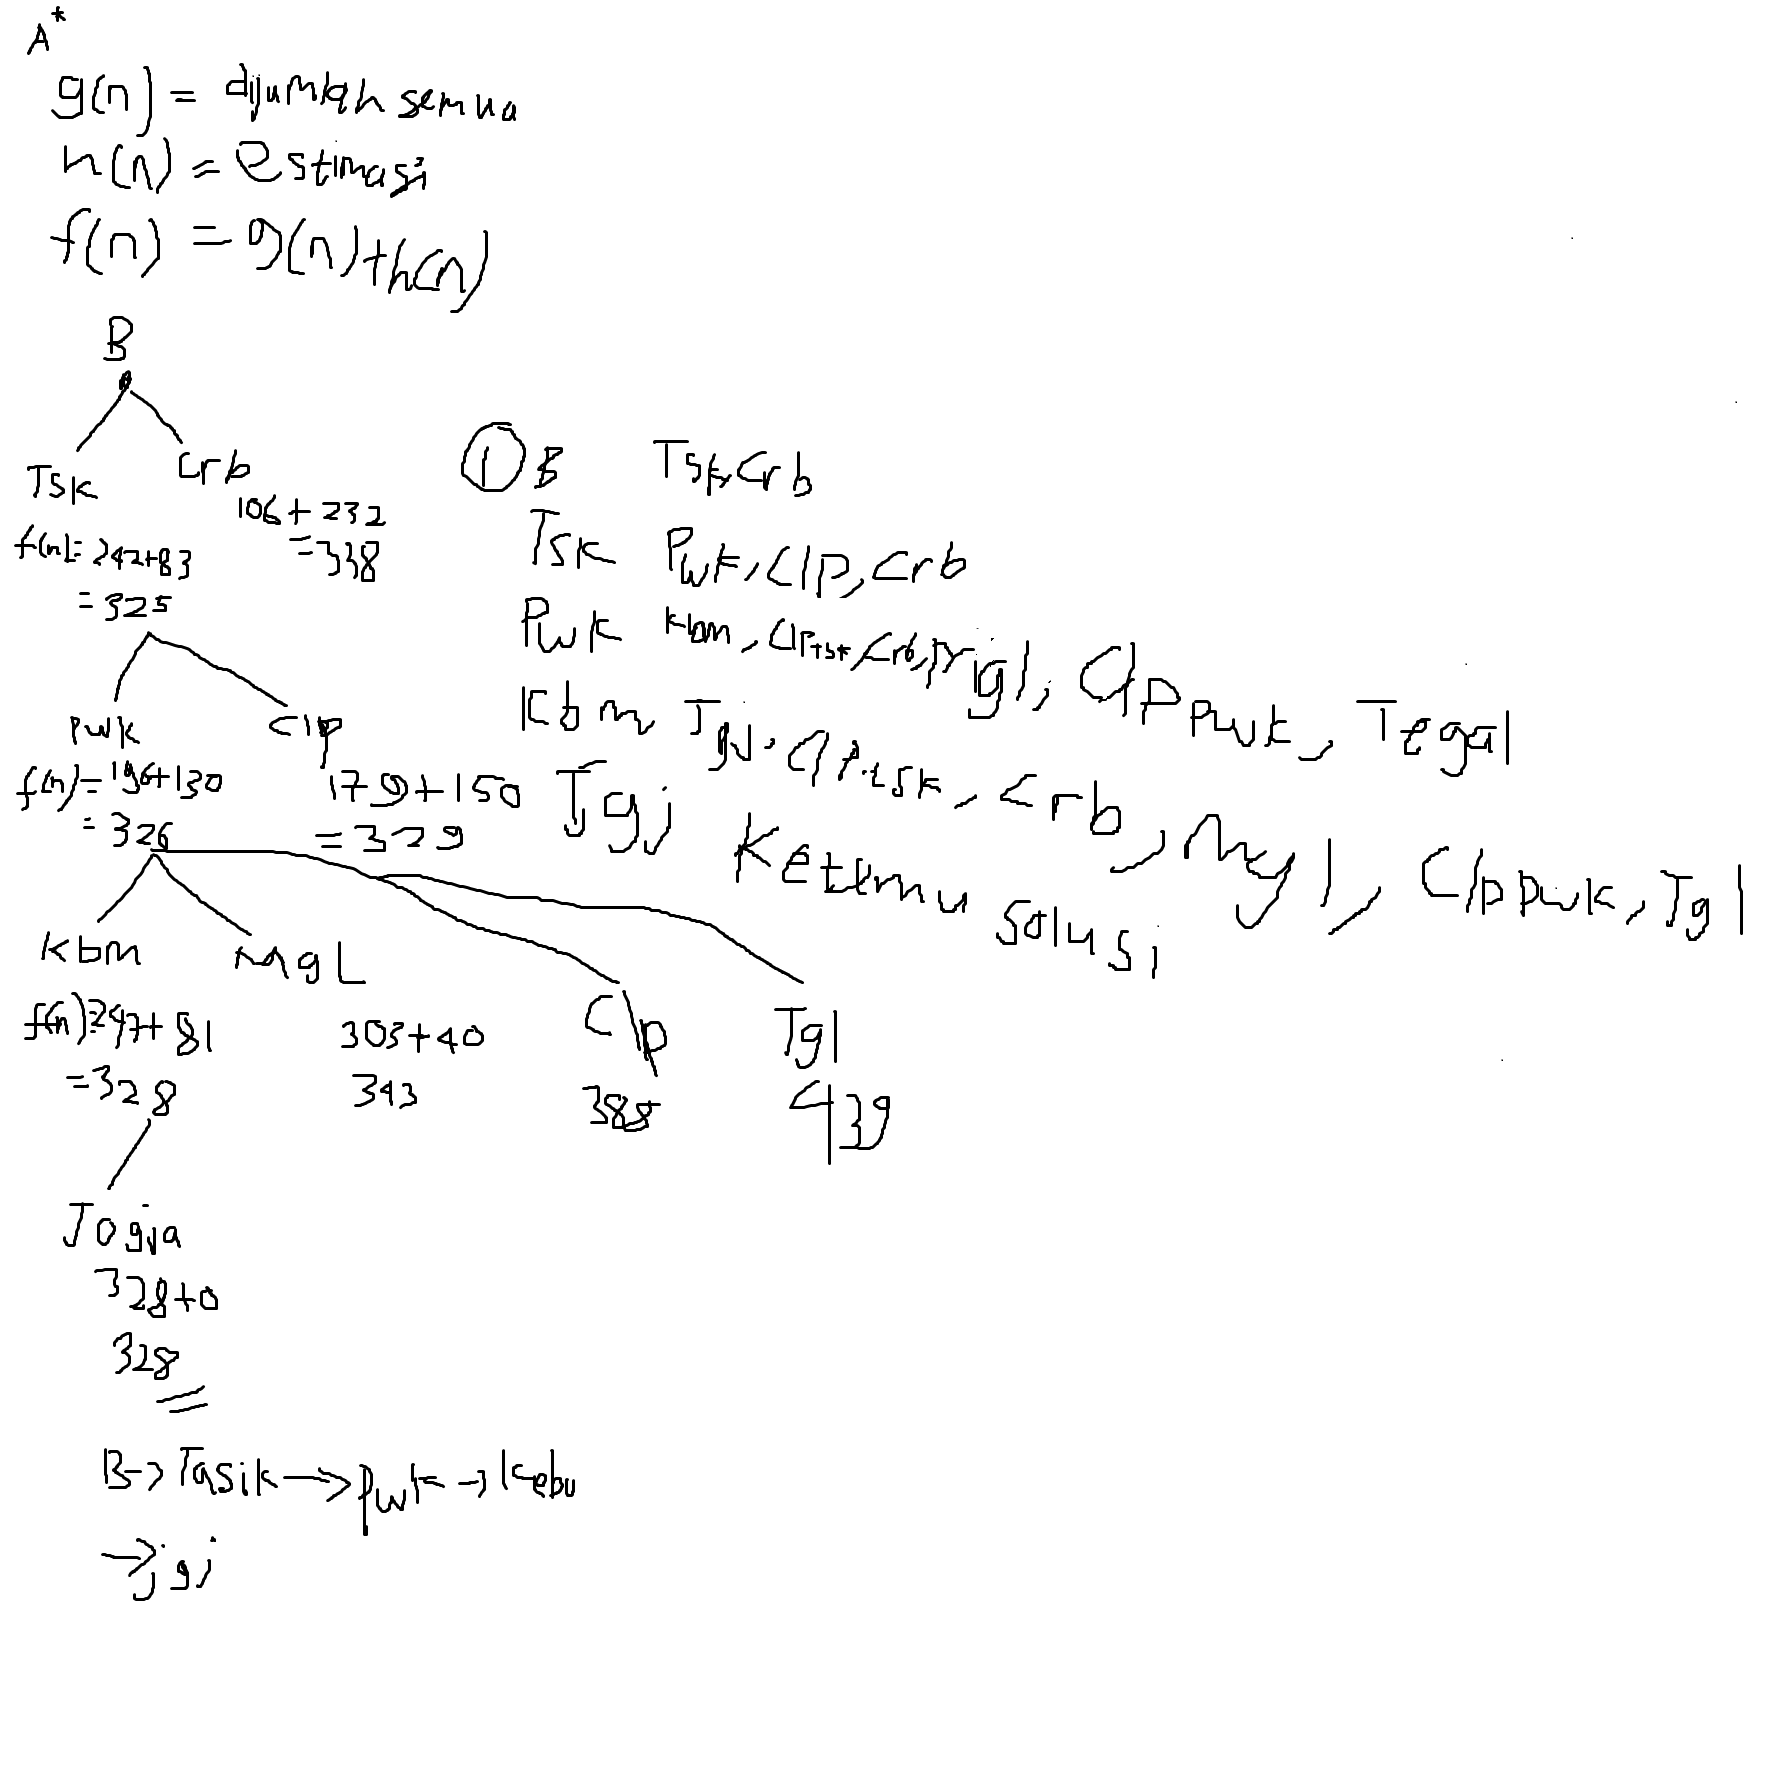 A*
g(n) = dijumlah semua
h(n) = estimasi
f(n) = g(n)+h(n)
B
Tsk Crb
f(n)= 242+83
= 325
106+232
=338
Pwk Clp
f(n)= 196+130
= 326
179+150
= 329
kbm MgL Clp Tgl
f(n)=247+81
=328
303+40
343
388
439
Jogja
328+0
328
B-> Tasik -> Pwk -> Kebu
-> jgj
① B Tsk, Crb
Tsk Pwk, Clp, Crb
Pwk kbm, Clp tsk, Crb, Mgl, Clp pwk, Tegal
Kbm Jgj, Clp tsk, Crb, Mgl, Clp pwk, Tgl
Jgj Ketemu solusi